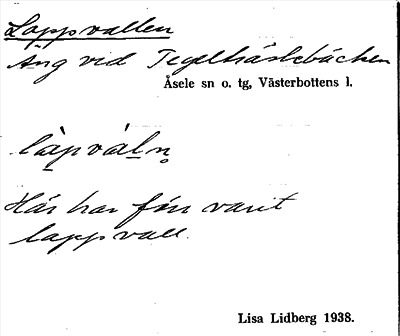 Lappvallen
Äng vid Tegelträskbäcken
Åsele sn o. tg, Västerbottens l.
làpvàln̥
Här har förr varit
lappvall.
Lisa Lidberg 1938.